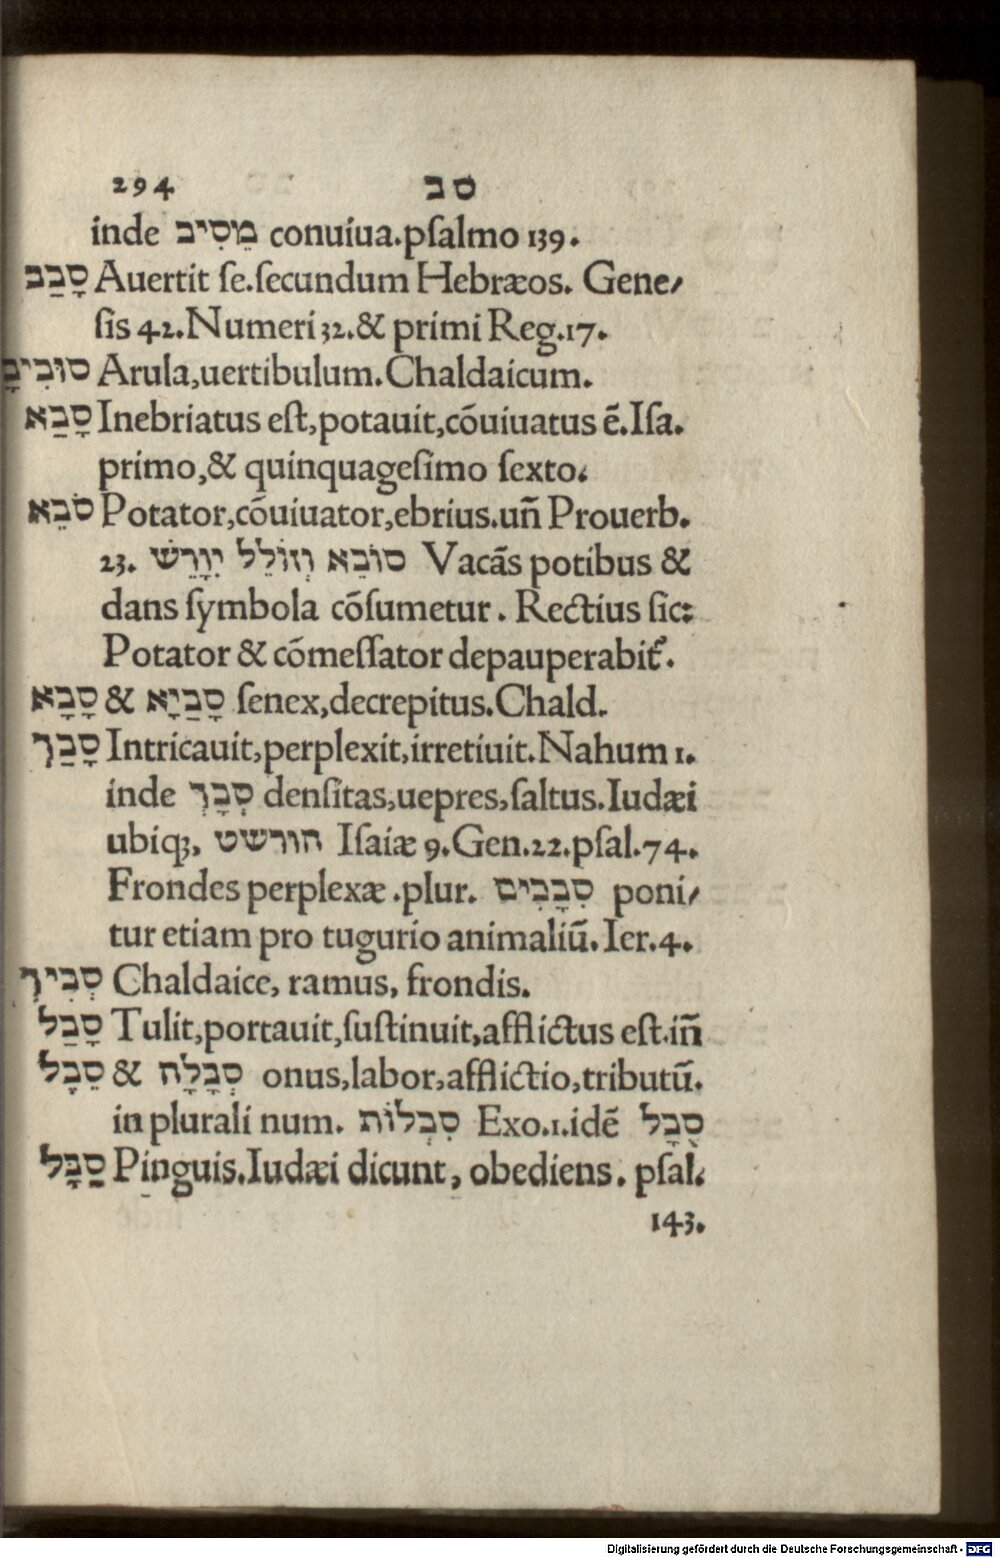 294 סב
inde מֵסִיב conuiua.pſalmo 139.
סָבַב Auertit ſe.ſecundum Hebræos. Gene/
ſis 42.Numeri 32.& primi Reg.17.
Arula,uertibulum.Chaldaicum.
סָבַא Inebriatus eſt,potauit,cõuiuatus ẽ.Iſa.
primo,& quinquageſimo ſexto.
סֹבֵא Potator,cõuiuator,ebrius.uñ Prouerb.
23. סוֹבֵא וְזוֹלֵל יִוָרֵשׁ Vacãs potibus &
dans ſymbola cõſumetur. Rectius ſic:
Potator & cõmeſſator depauperabit᷑.
סָבָא & סָבַיָא ſenex,decrepitus.Chald.
סָבַךְ Intricauit,perplexit,irretiuit.Nahum 1.
inde סְבָךְ denſitas,uepres,ſaltus.Iudæi
ubiqꝫ. הורשט Iſaiæ 9.Gen.22.pſal.74.
Frondes perplexæ.plur. סִבָבִים poni/
tur etiam pro tugurio animaliũ.Ier.4.
סְבִיךְ Chaldaice, ramus, frondis.
סָבַל Tulit,portauit,ſuſtinuit,afflictus eſt.iñ
סֵבֶל & סְבָלָה onus,labor,afflictio,tributũ.
in plurali num. סִבְלוֹת Exo.1.idẽ סֻבָל
סַבָּל Pinguis.Iudæi dicunt, obediens. pſal.
143.
Digitalisierung gefördert durch die Deutsche Forschungsgemeinschaft - DFG